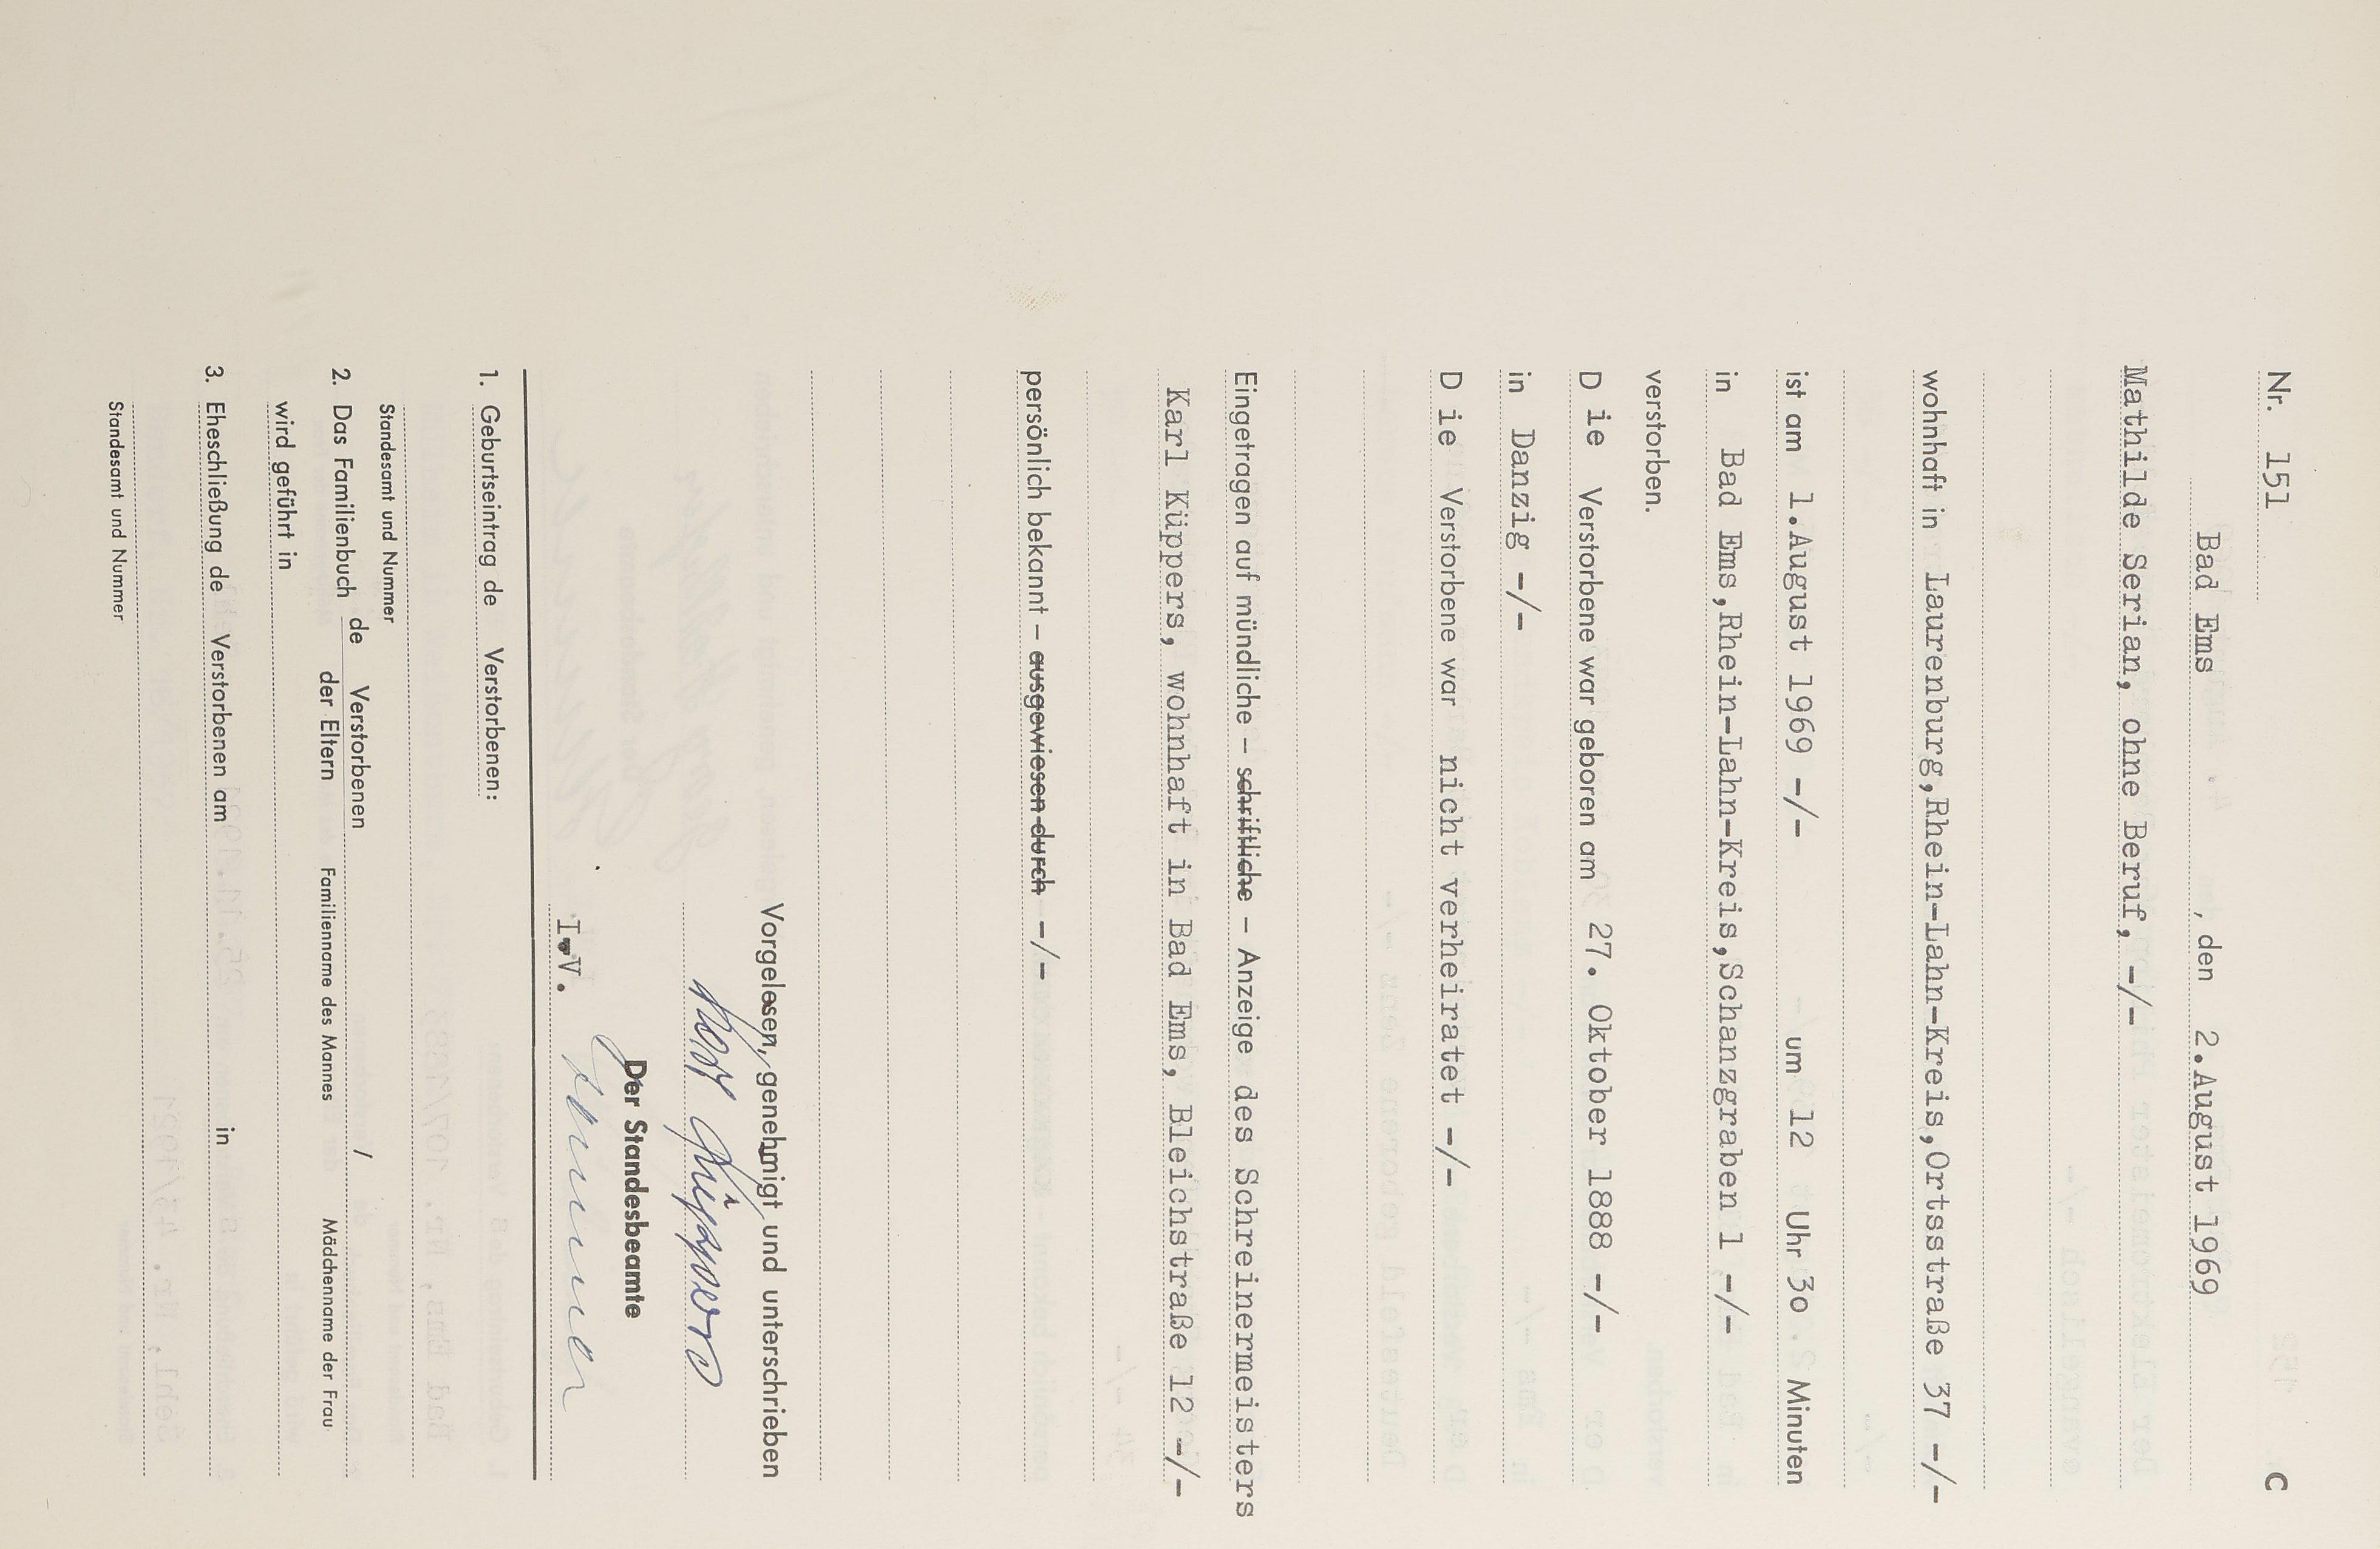 Nr. 151 C
Bad Ems , den 2.August 1969
Mathilde Serian, ohne Beruf, -/-
wohnhaft in Laurenburg,Rhein-Lahn-Kreis,Ortsstraße 37 -/-
ist am 1.August 1969 -/- um 12 Uhr 3o Minuten
in Bad Ems,Rhein-Lahn-Kreis,Schanzgraben 1 -/-
verstorben.
D ie Verstorbene war geboren am 27. Oktober 1888 -/-
in Danzig -/-
D ie Verstorbene war nicht verheiratet -/-
Eingetragen auf mündliche – schriftliche – Anzeige des Schreinermeisters
Karl Küppers, wohnhaft in Bad Ems, Bleichstraße 12 -/-
persönlich bekannt – ausgewiesen durch -/-
Vorgelesen, genehmigt und unterschrieben
Karl Küppers
Der Standesbeamte
I.V.
1. Geburtseintrag de Verstorbenen:
Standesamt und Nummer
2. Das Familienbuch de Verstorbenen /
der Eltern Familienname des Mannes Mädchenname der Frau
wird geführt in
3. Eheschließung de Verstorbenen am in
Standesamt und Nummer